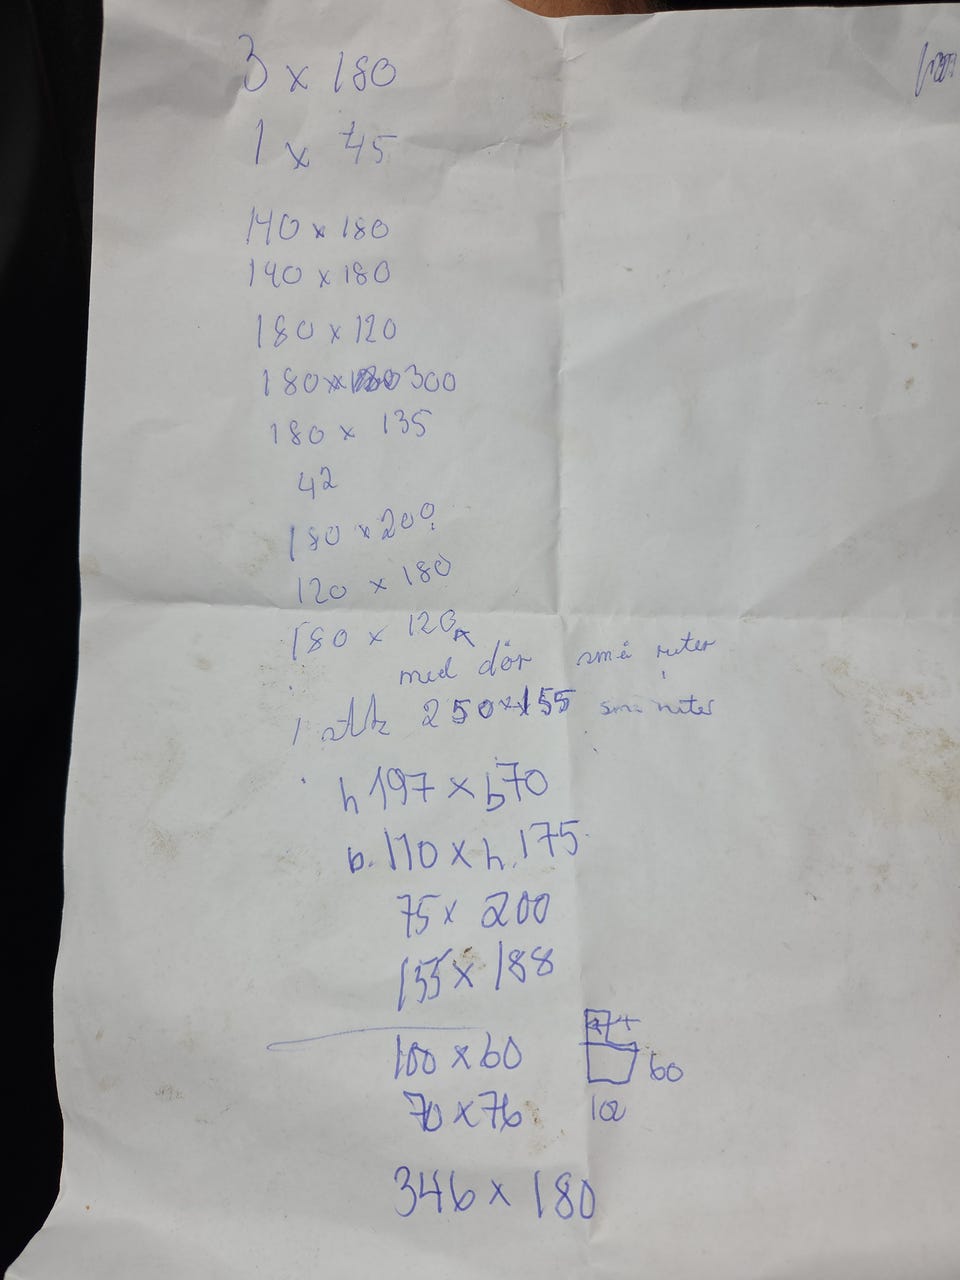 3 x 180
1 x 45
140 x 180
140 x 180
180 x 120
180 x 300
180 x 135
42
180 x 200
120 x 180
180 x 120
med dör små ruter
1 stk 250 x 155 små ruter
h 197 x b 70
b. 110 x h. 175
75 x 200
155 x 188
100 x 60
60
70 x 76
102
346 x 180